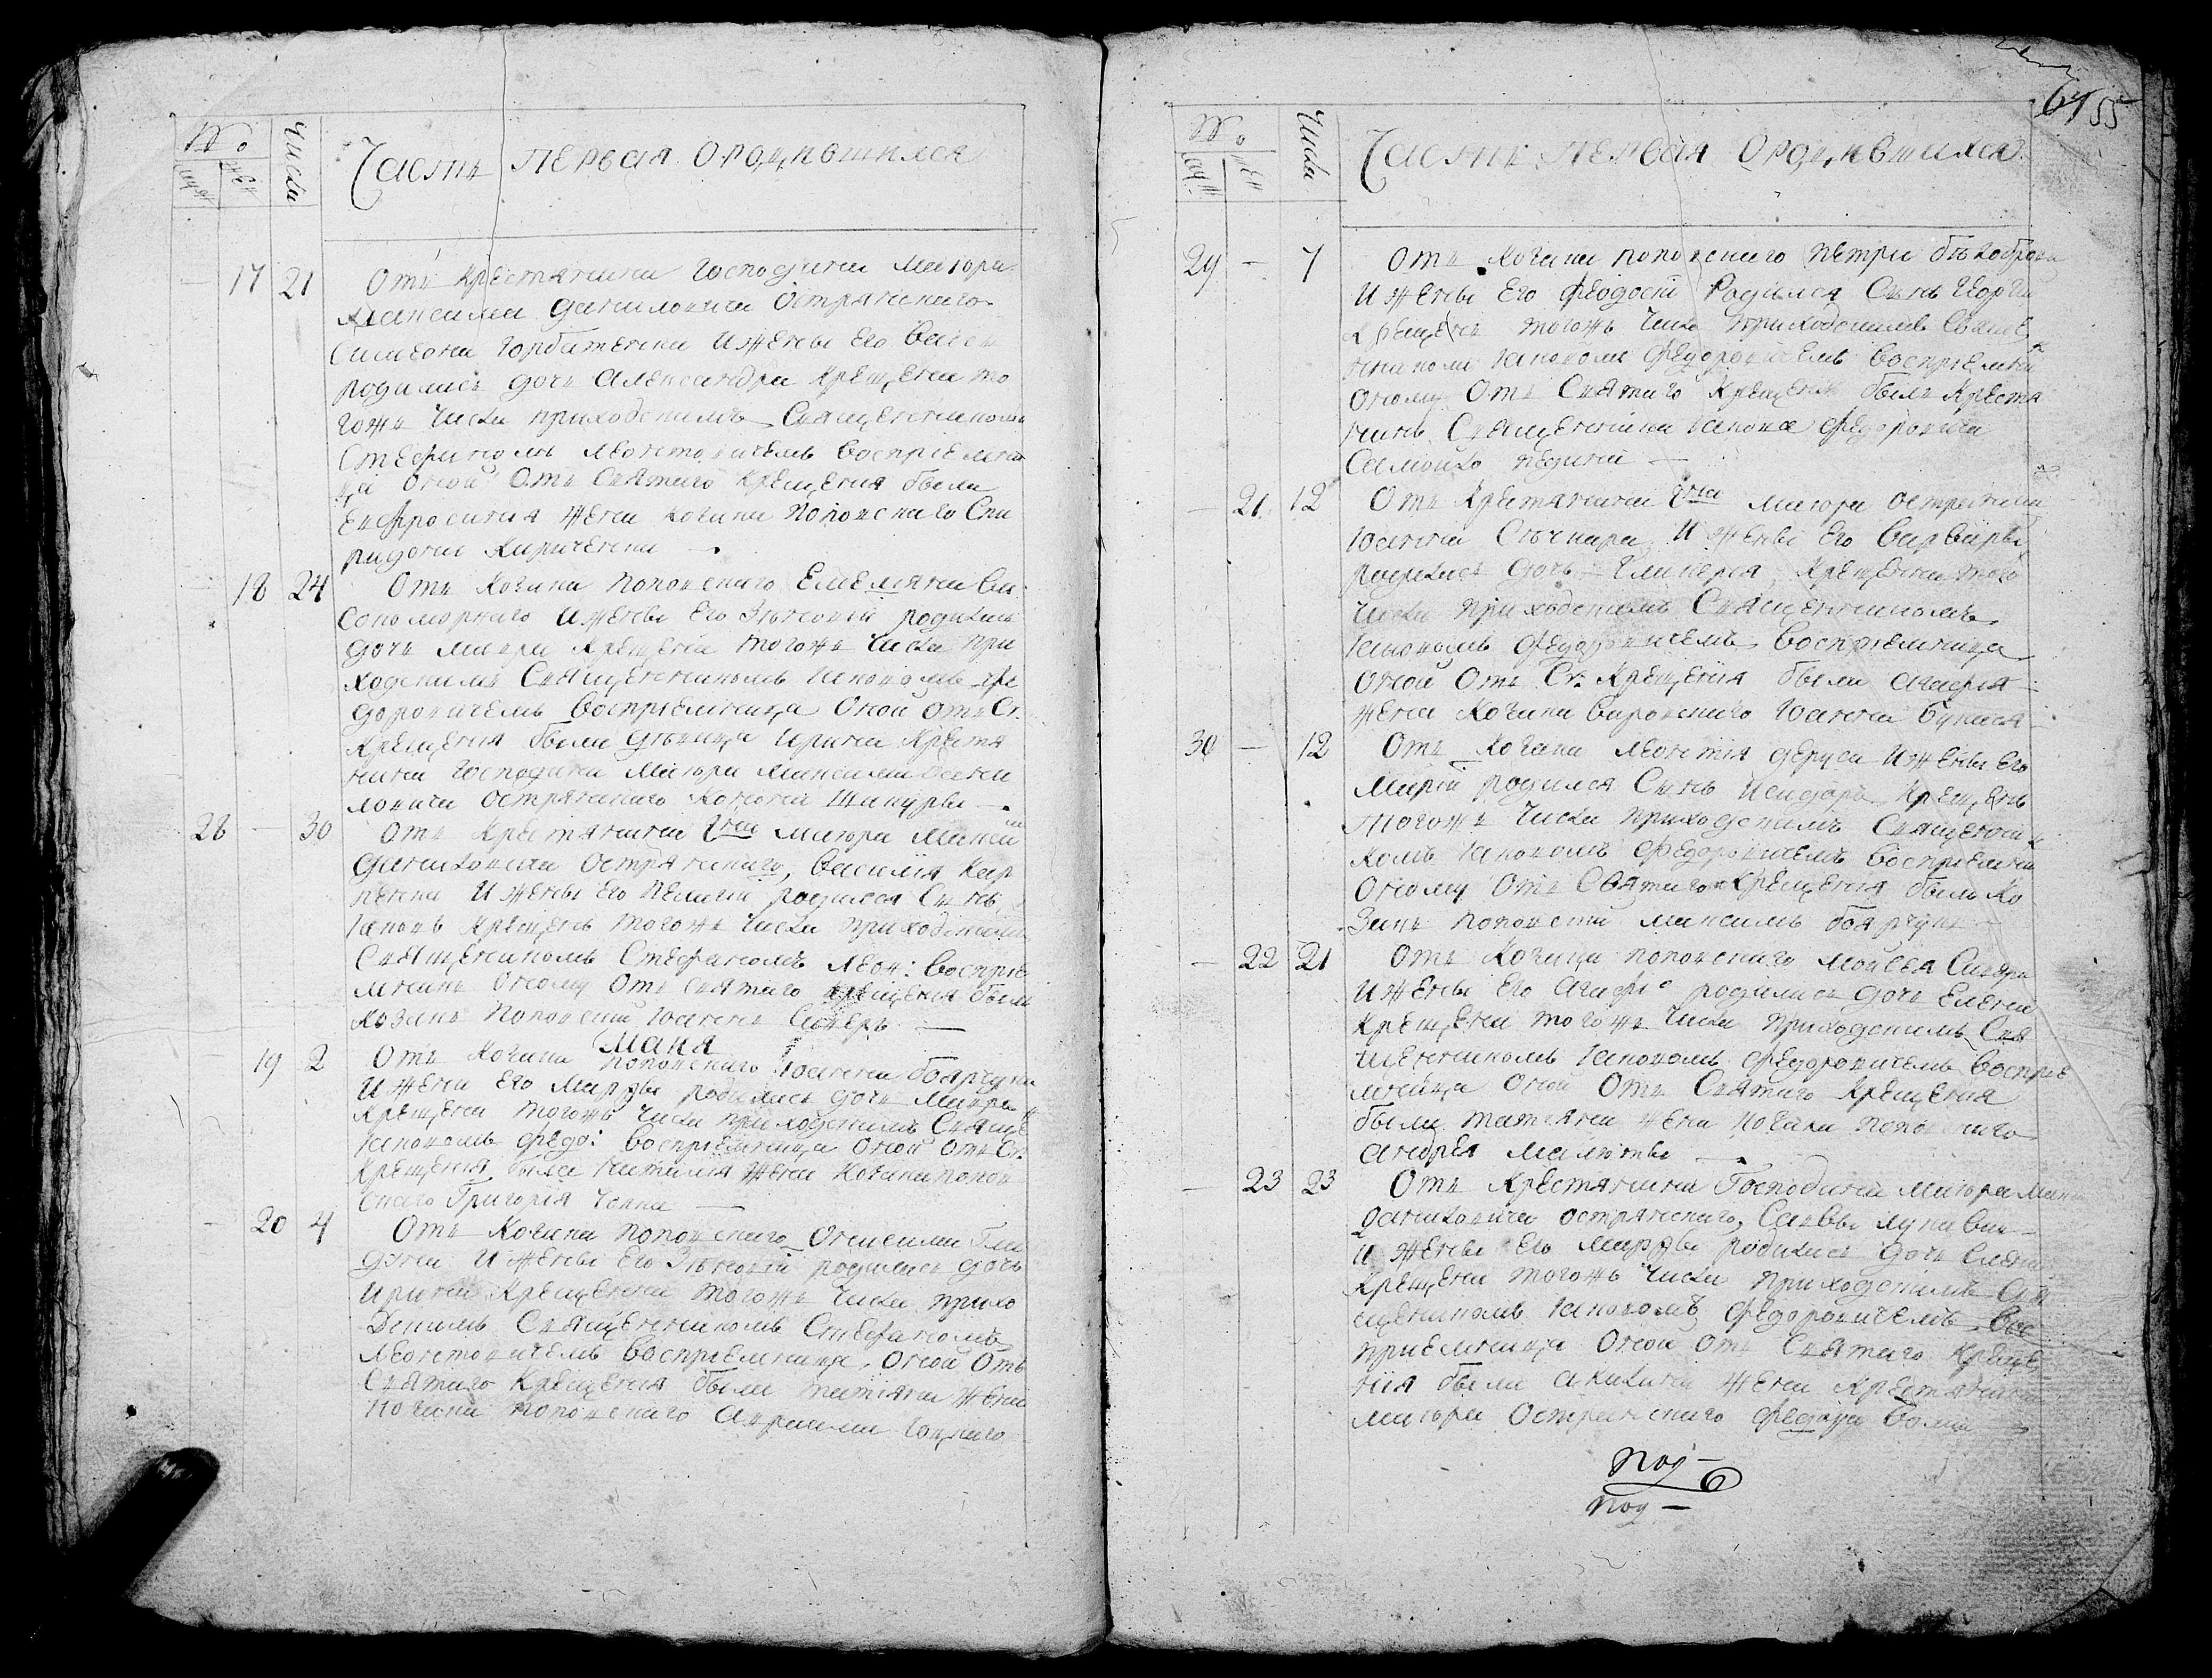 №
Числа
муж
жен
Часть первая о родившихся
17 21 Отъ крестянина господина маиора
максима даниловича острянскаго
Симеона горбатенка и жены его
родилась дочь александра крещена то
гожъ числа приходскимъ Священникомъ
Стефаномъ леонтовичемъ восприемни
ца оной отъ Святаго крещения была
Евфросиния жена козака поповскаго Спи
ридона кириченка —
18 24 Отъ козака поповскаго Емелияна ви
сокоморнаго и жены его Зѣновіи родилась
дочь мавра крещена тогожъ числа при
ходскимъ Священникомъ иаковомъ фе
доровичемъ восприемница оной отъ Св:
крещения была дѣвица ирина крестя
нина господина маиора максима дани
ловича острянскаго конона шакуры —
28 — 30 Отъ крестянина гдна маиора макси
даниловича острянскаго, василия кар
пенка и жены его пелагии родился Сынъ
иаковъ крещенъ тогожъ числа приходскимъ
Священикомъ Стефаномъ леон: восприе
мникъ оному отъ святаго крещения былъ
козакъ поповский иоаннъ
— 19 2 маия
Отъ козака поповскаго иоанна боярчука
и жены его марфы родилась дочь мавра
крещена тогожъ числа приходскимъ Священ
иаковомъ федо: восприемница оной отъ Св:
крещения была наталия жена козака попов
скаго Григория чапка —
— 20 4 Отъ козака поповскаго онисима
и жены его Зѣновіи родилась дочь
ирина крещенна тогожъ числа прихо
дскимъ Священникомъ Стефаномъ
леонтовичемъ восприемница оной отъ
Святаго крещения была татияна жена
козака поповскаго авраама
55
№
Числа
муж
жен
Часть первая о родившихся
29 — 7 Отъ козака поповскаго петра бѣлоброва
и жены его феодосіи родился Сынъ георгий
крещенъ тогожъ числа приходскимъ Свяще
нникомъ иаковомъ федоровичемъ восприемникъ
оному отъ Святаго крещения былъ крестя
нинъ Священника иакова федоровича
Самойло —
— 21 12 Отъ крестянина гдна маиора острянскаго
иоанна Слѣсара и жены его варвары
родилась дочь гликерия, крещенна того
числа приходскимъ Священникомъ
иаковомъ федоровичемъ восприемница
оной отъ Св: крещения была агафия
жена козака вировскаго иоанна
30 — 12 Отъ козака леонтия деруса и жены его
марии родился Сынъ исидоръ крещенъ
тогожъ числа приходскимъ Священни
комъ иаковомъ федоровичемъ восприемник
оному отъ Святаго крещения былъ ко
закъ поповский максимъ боярчукъ —
— 22 21 Отъ козака поповскаго моисея
и жены его агафіи родилась дочь елена
крещена тогожъ числа приходскимъ Свя
щенникомъ иаковомъ федоровичемъ восприе
мница оной отъ Святаго крещения
была татияна жена козака поповскаго
андрея малюты —
— 23 23 Отъ крестянина Господина маиора макси
даниловича острянскаго, Саввы
и жены его марфы родилась дочь елена
крещена тогожъ числа приходскимъ Свя
щеникомъ иаковомъ федоровичемъ вос
приемница оной отъ Святаго креще
ния была акилина жена крестянина
маиора острянскаго федора